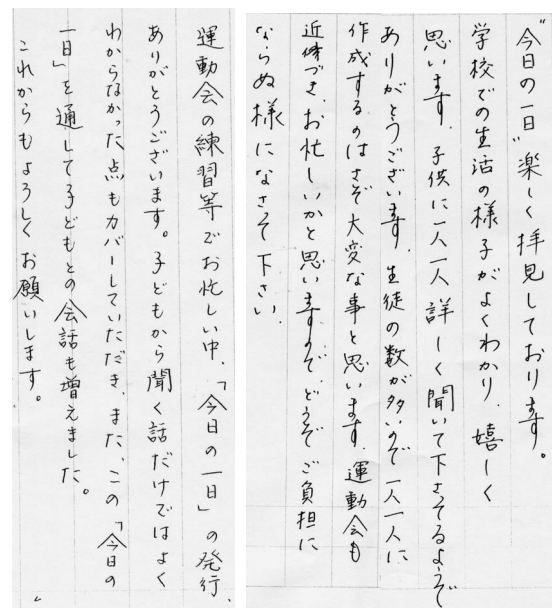 "今日の一日"楽しく拝見しております。
学校での生活の様子がよくわかり、嬉しく
思います。子供に一人一人詳しく聞いて下さってるようで
ありがとうございます。生徒の数が多いので一人一人に
作成するのはさぞ大変な事と思います。運動会も
近づき、お忙しいかと思いますので、どうぞご負担に
ならぬ様になさって下さい。
運動会の練習等でお忙しい中、「今日の一日」の発行、
ありがとうございます。子どもから聞く話だけではよく
わからなかった点もカバーしていただき、また、この「今日の
一日」を通して子どもとの会話も増えました。
これからもよろしくお願いします。